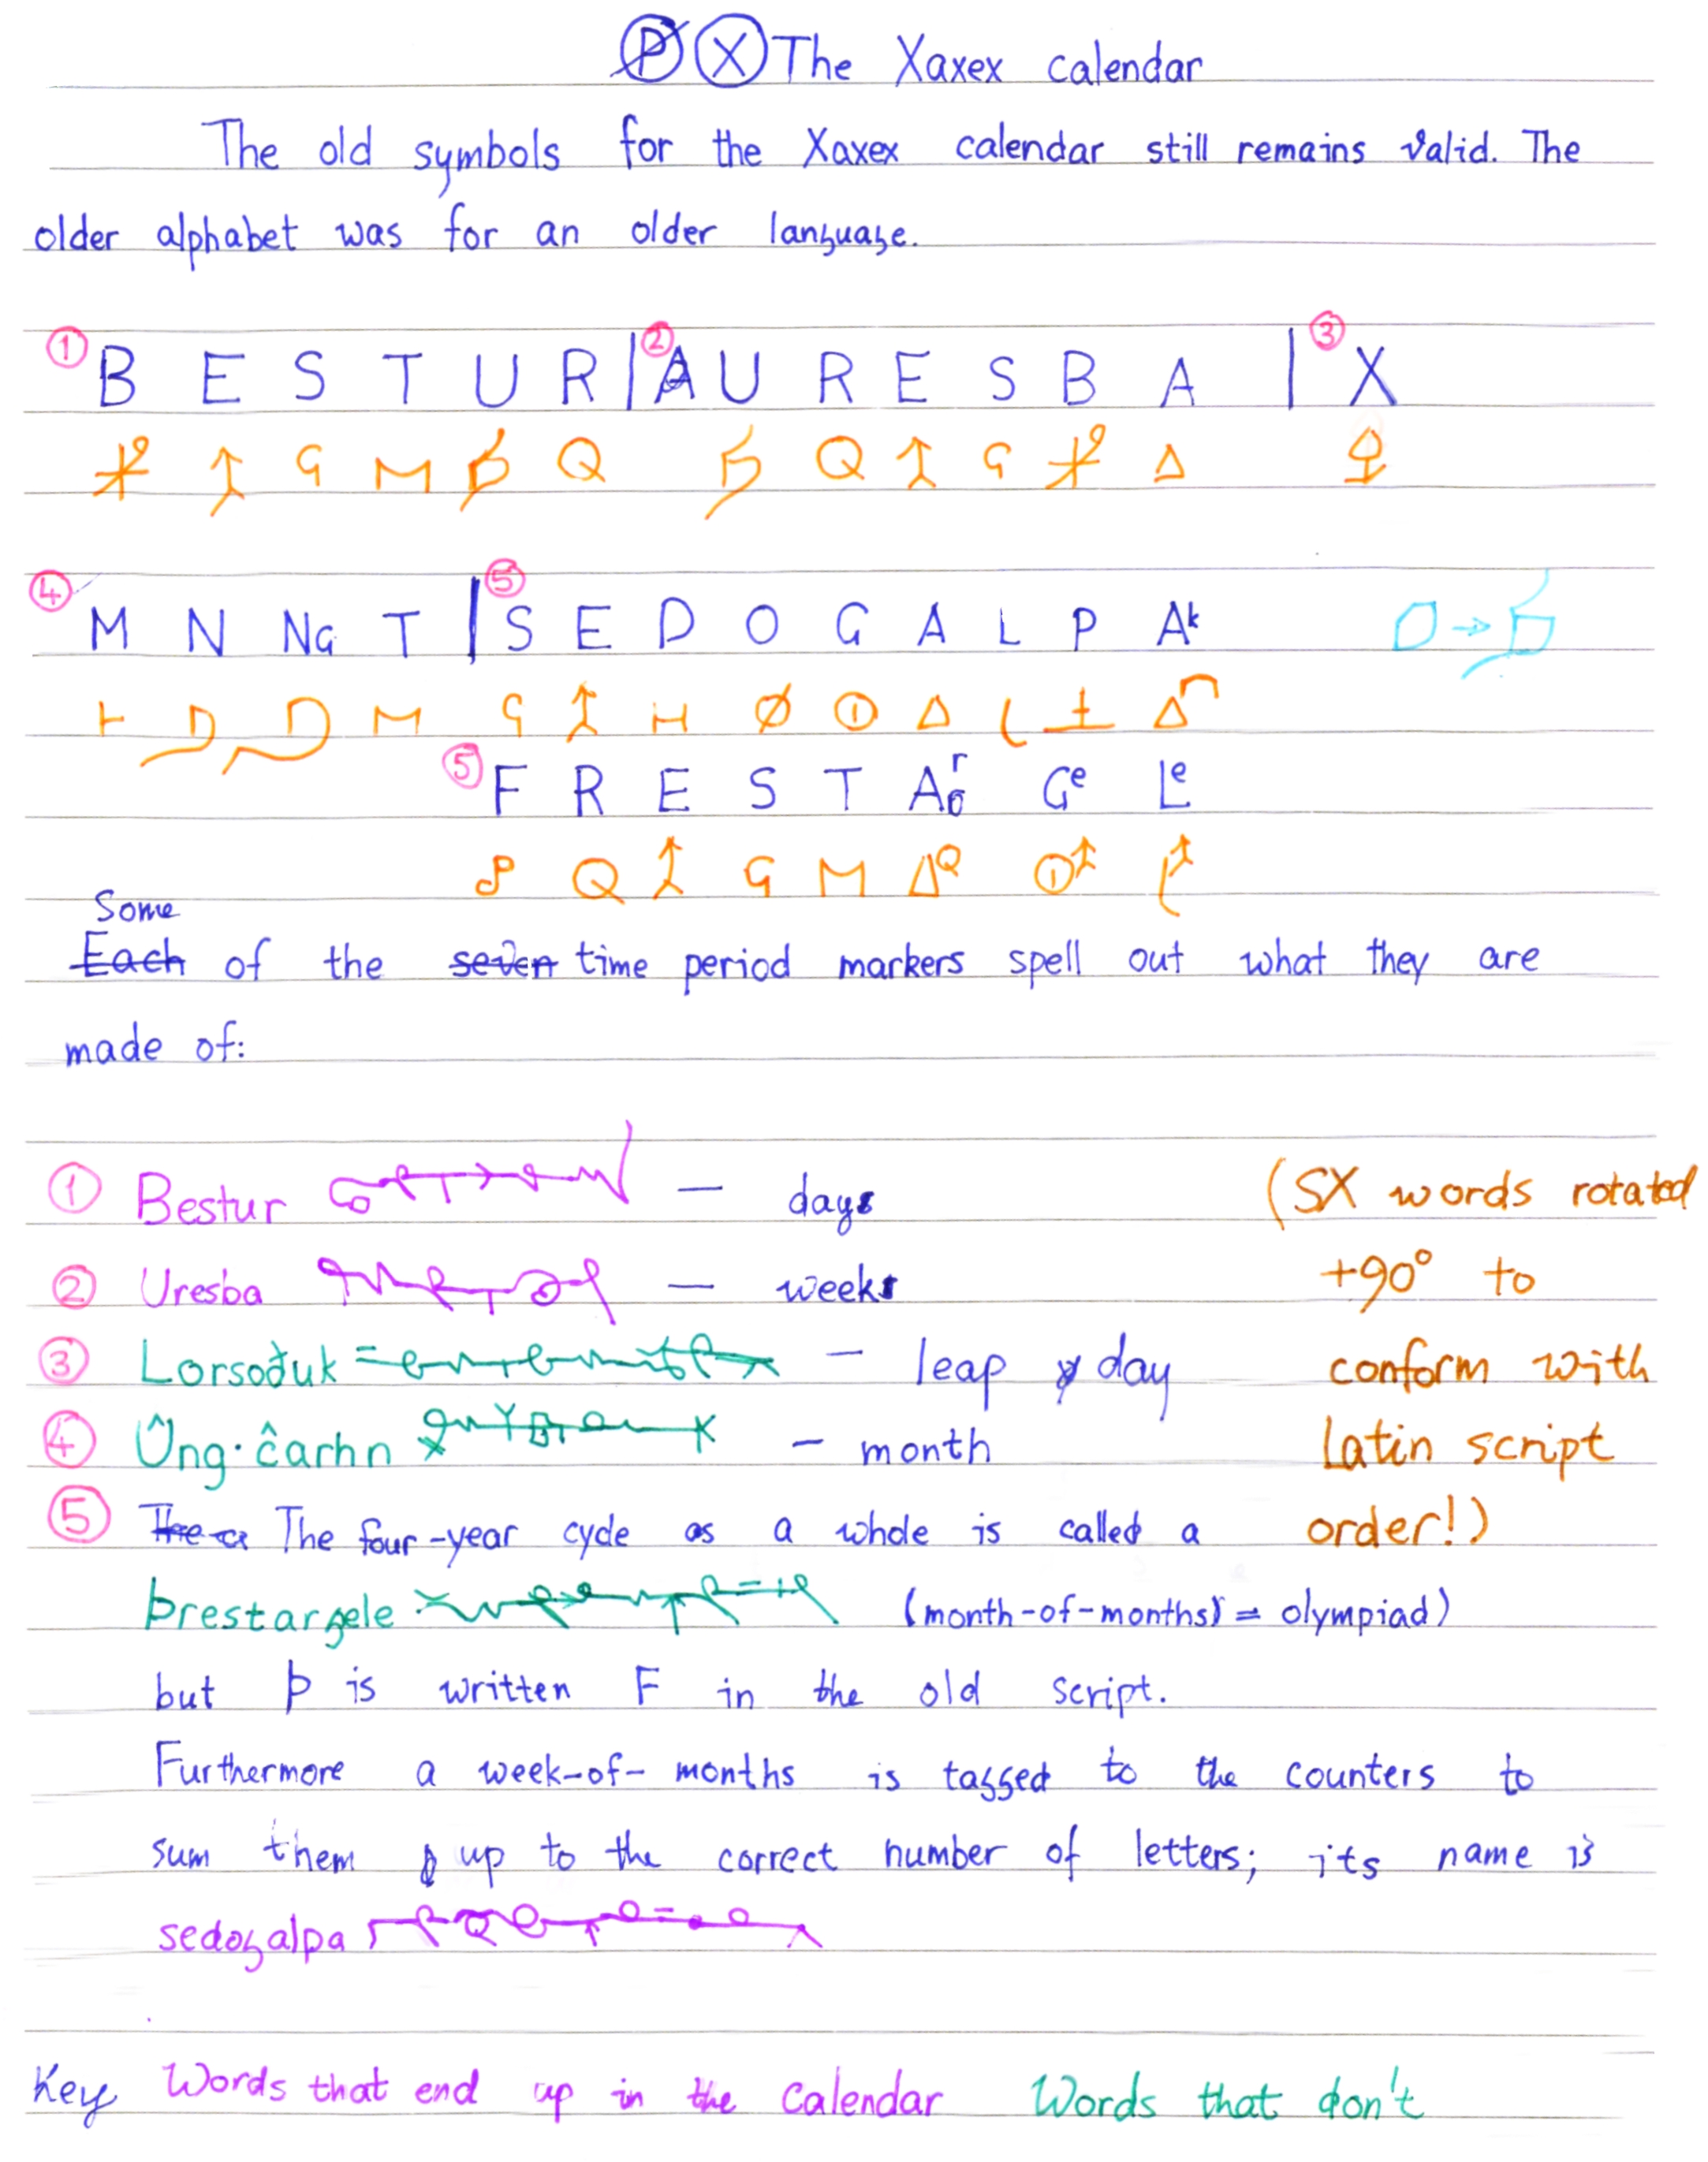 Ⓟ Ⓧ The Xaxex calendar
The old symbols for the Xaxex calendar still remains valid. The
older alphabet was for an older language.
① B E S T U R | ② A U R E S B A | ③ X
④ M N NG T | ⑤ S E D O G A L P Aᵏ
⑤ F R E S T Aʳ Gᵉ Lᵉ
Some
Each of the seven time period markers spell out what they are
made of:
① Bestur — days
② Uresba — week
③ Lorsođuk — leap day
④ Ûng·ĉarhn — month
(SX words rotated
+90° to
conform with
Latin script
order!)
⑤ The four-year cycle as a whole is called a
þrestargele (month-of-months) = olympiad)
but þ is written F in the old script.
Furthermore a week-of-months is tagged to the counters to
sum them up to the correct number of letters; its name is
sedogalpa
Key Words that end up in the calendar Words that don't